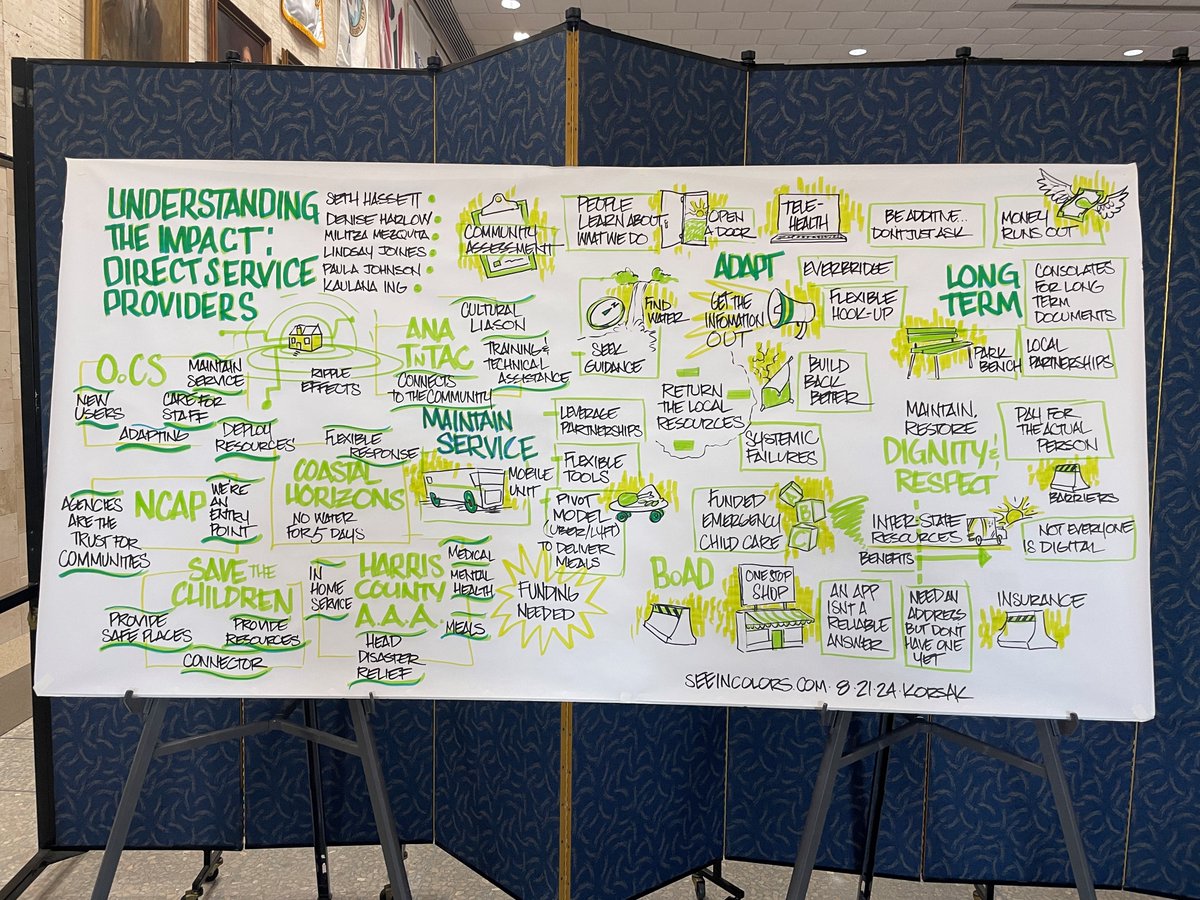 UNDERSTANDING
THE IMPACT:
DIRECT SERVICE
PROVIDERS
SETH HASSETT
DENISE HARLOW
MILITZA MEZQUITA
LINDSAY JOINES
PAULA JOHNSON
KAULANA ING
COMMUNITY
ASSESSMENT
PEOPLE
LEARN ABOUT
WHAT WE DO
OPEN
A DOOR
TELE-
HEALTH
BE ADDITIVE...
DONT JUST ASK...
MONEY
RUNS OUT
OoCS
MAINTAIN
SERVICE
NEW
USERS
CARE FOR
STAFF
ADAPTING
DEPLOY
RESOURCES
RIPPLE
EFFECTS
CULTURAL
LIASON
ANA
TNTAC
TRAINING &
TECHNICAL
ASSISTANCE
CONNECTS
TO THE COMMUNITY
FIND
WATER
SEEK
GUIDANCE
ADAPT
EVERBRIDGE
GET THE
INFOMATION
OUT
FLEXIBLE
HOOK-UP
LONG
TERM
CONSOLATES
FOR LONG
TERM
DOCUMENTS
PARK
BENCH
LOCAL
PARTNERSHIPS
RETURN
THE LOCAL
RESOURCES
BUILD
BACK
BETTER
MAINTAIN
SERVICE
LEVERAGE
PARTNERSHIPS
SYSTEMIC
FAILURES
MAINTAIN,
RESTORE
DIGNITY &
RESPECT
PAY FOR
THE ACTUAL
PERSON
BARRIERS
NCAP
AGENCIES
ARE THE
TRUST FOR
COMMUNITIES
WE'RE
AN
ENTRY
POINT
FLEXIBLE
RESPONSE
COASTAL
HORIZONS
NO WATER
FOR 5 DAYS
MOBILE
UNIT
FLEXIBLE
TOOLS
PIVOT
MODEL
(UBER/LYFT)
TO DELIVER
MEALS
FUNDED
EMERGENCY
CHILD CARE
B
INTER-STATE
RESOURCES
BENEFITS
NOT EVERYONE
IS DIGITAL
SAVE THE
CHILDREN
PROVIDE
SAFE PLACES
PROVIDE
RESOURCES
CONNECTOR
IN
HOME
SERVICE
HARRIS
COUNTY
A.A.A.
HEAD
DISASTER
RELIEF
MEDICAL
MENTAL
HEALTH
MEALS
FUNDING
NEEDED
BOAD
ONE STOP
SHOP
AN APP
ISN'T A
RELIABLE
ANSWER
NEED AN
ADDRESS
BUT DONT
HAVE ONE
YET
INSURANCE
SEEINCOLORS.COM · 8·21·24·KORSAK